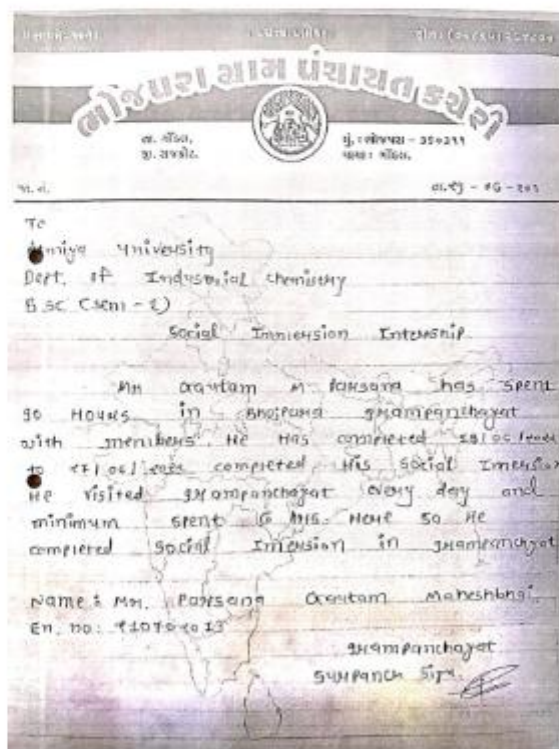 ભોજપરા ગ્રામ પંચાયત કચેરી
તા. ગોંડલ,
જી. રાજકોટ.
મું. : ભોજપરા - ૩૬૦૩૧૧
વાયા : ગોંડલ.
જા. નં.
To
university
Dept. of Industrial chemistry
B.SC (sem - 2)
Social Immersion Internship
Mr Gautam M Parsana has spent
90 Hours in Bhojpara grampanchayat
with members. He Has completed
to completed His Social Imersion
He visited grampanchayat every day and
minimum spent 6 hrs. Here so He
completed Social Imersion in grampanchyat
Name : Mr. Parsana Gautam Maheshbhai
En. no :
grampanchayat
Surpanch Sign.